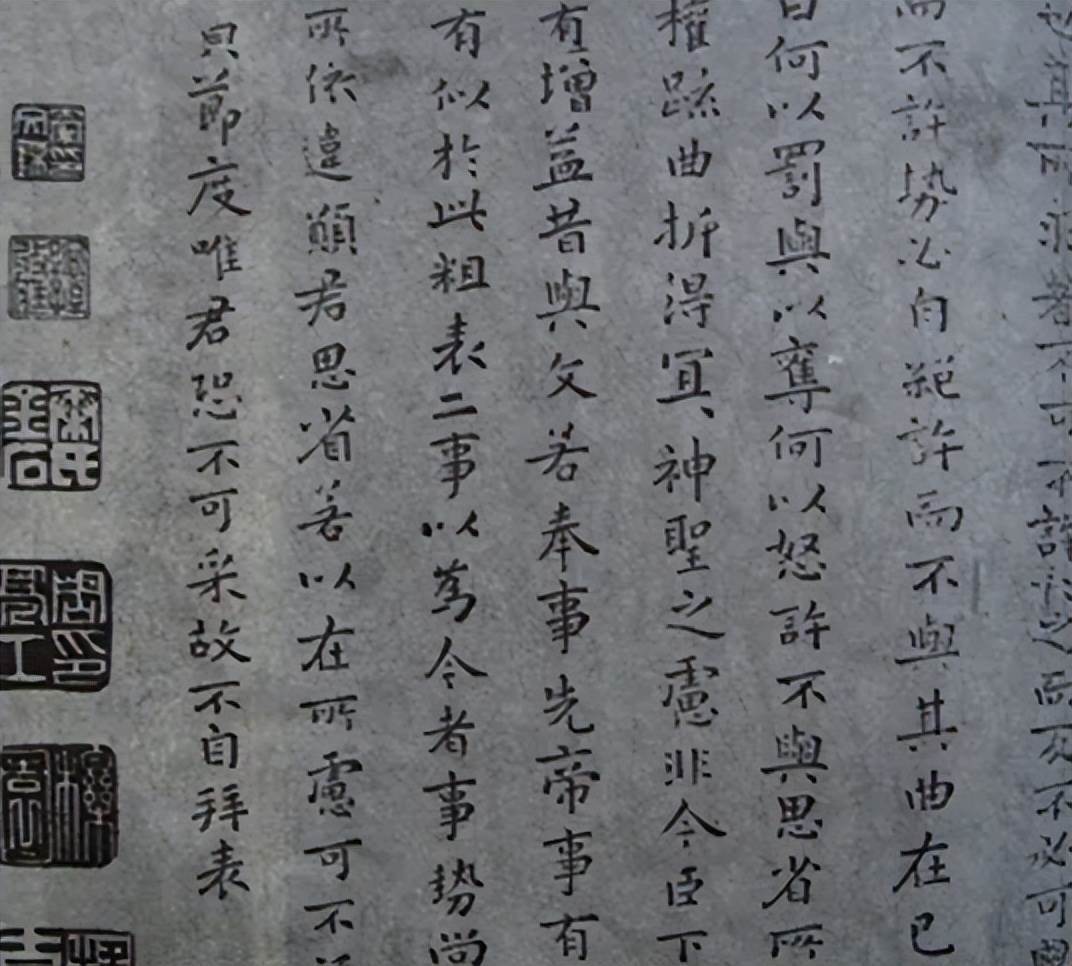 其所求者不可不許許之而反不必可與
而不許勢必自絕許而不與其曲在己
曰何以罰與以奪何以怒許不與思省所
權疏曲折得宜宜神聖之慮非今臣下
有增益昔與文若奉事先帝事有
有似於此粗表二事以為今者事勢尚
所依違願君思省若以在所慮可不
貝節度唯君恐不可采故不自拜表